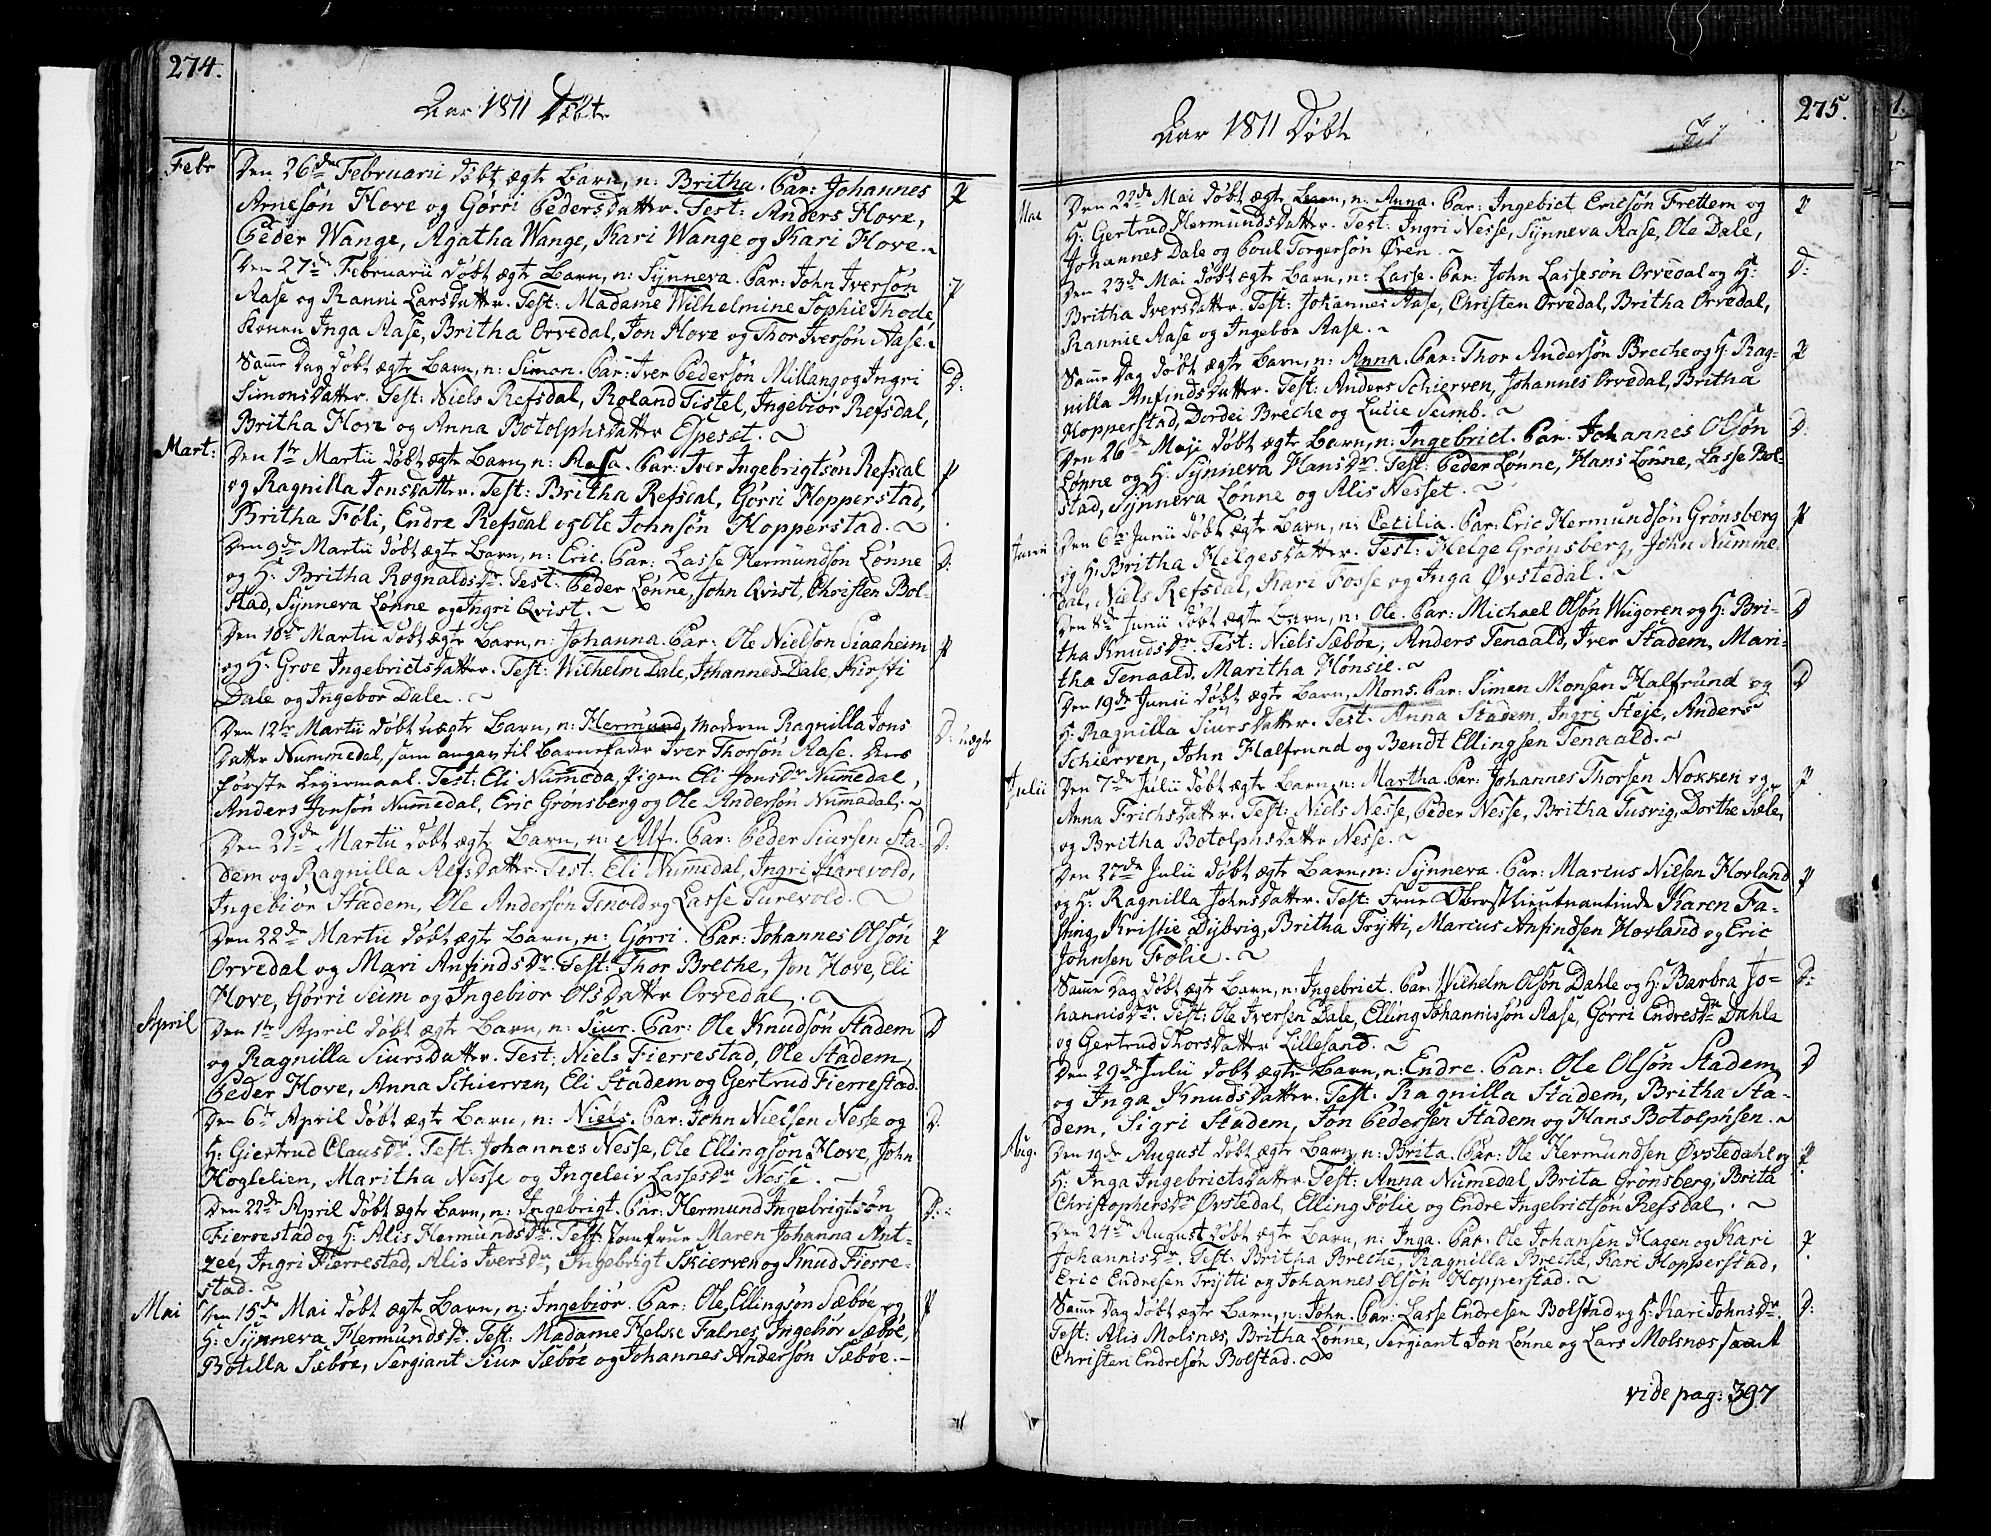 274.
Aar 1811 Døbte
Febr Den 26de Februarii døbt ægte Barn, n: Britha. Par: Johannes
Arnesön Hove og Gørri Pedersdatter. Test: Anders Hove, P
Peder Wange, Agatha Wange, Kari Wange og Kari Hove.
Den 27de Februarii døbt ægte Barn, n: Synneva. Par: John Iversön
Aase og Ranni Larsdatter. Test: Madame Wilhelmine Sophie Thode,
Konen Inga Aase, Britha Orvedal, Jon Hove og Thor Iversön Aase.
Same Dag døbt ægte Barn, n: Simon. Par: Iver Pedersön Millang og Ingri
Simonsdatter. Test: Niels Refsdal, Roland Tistel, Ingebiør Refsdal, D:
Britha Hove og Anna Botolphsdatter Espeset.
Mart: Den 1te Martii døbt ægte Barn, n: Aasa. Par: Iver Ingebrigtsön Refsdal
og Ragnilla Jonsdatter. Test: Britha Refsdal, Gørri Hopperstad, P
Britha Føli, Endre Refsdal og Ole Johnsön Hopperstad.
Den 9de Martii døbt ægte Barn, n: Eric. Par: Lasse Hermundsön Lønne
og H: Britha Rognaldsdr. Test: Peder Lønne, John Qvist, Christen Bol- D:
stad, Synneva Lønne og Ingri Qvist.
Den 10de Martii døbt ægte Barn, n: Johanna. Par: Ole Nielsön Siaaheim
og H: Groe Ingebrictsdatter. Test: Wilhelm Dale, Johannes Dale, Kirsti P
Dale og Ingebor Dale.
Den 12te Martii døbt uægte Barn, n: Hermund, Moderen Ragnilla Jons
datter Nummedal, som angav til Barnefader Iver Thorsön Aase. Dens D: uægte
første Leyermaal. Test: Eli Numeda, Pigen Eli Jonsdr Numedal,
Anders Jonsön Numedal, Eric Grønsberg og Ole Andersön Numadal.
Den 21de Martii døbt ægte Barn, n: Alf. Par: Peder Siursen Sta- D:
dem og Ragnilla Alfsdatter. Test: Eli Numedal, Ingri
Ingebiør Stadem, Ole Andersön Tinold og Lasse Turevold.
Den 22de Martii døbt ægte Barn, n: Gørri. Par: Johannes Olsön P
Orvedal og Mari Anfindsdr. Test: Thor Breche, Jon Hove, Eli
Hove, Gørri Seim og Ingebior Olsdatter Orvedal.
April Den 1te April døbt ægte Barn, n: Siur. Par: Ole Knudsön Stadem D
og Ragnilla Siursdatter. Test: Niels Fierrestad, Ole Stadem,
Peder Hove, Anna Schierven, Eli Stadem og Gertrud Fierrestad.
Den 6te April døbt ægte Barn, n: Niels. Par: John Nielsen Nesse og D.
H: Giertrud Clausdr. Test: Johannes Nesse, Ole Ellingsön Hove, John
Hoglelien, Maritha Nesse og Ingeleiv Lassesdr Nesse.
Den 22de April døbt ægte Barn, n: Ingebrigt. Par: Hermund Ingebrigtsön D:
Fierrestad og H: Alis Hermundsdr. Test: Jomfrue Maren Johanna Ant-
zeé, Ingri Fierrestad, Alis Iversdr, Ingebrigt Skierven og Knud Fierre-
stad.
Mai Den 15de Mai døbt ægte Barn, n: Ingebiör. Par: Ole Ellingsön Sæbøe og P
H: Synneva Hermundsdr. Test: Madame Helse Falnes, Ingebiør Sæbøe,
Botilla Sæbøe, Sergiant Siur Sæbøe og Johannes Andersön Sæbøe.
275.
Aar 1811 Døbt
Mai Den 22de Mai døbt ægte Barn, n: Anna. Par: Ingebict Ericsön Frettem og P
H: Gertrud Hermundsdatter. Test: Ingri Nesse, Synneva Aase, Ole Dale,
Johannes Dale og Poul Torgersön Øren.
Den 23de Mai døbt ægte Barn, n: Lasse. Par: John Lassesön Orvedal og H: D:
Britha Iversdatter. Test: Johannes Aase, Christen Orvedal, Britha Orvedal,
Rannie Aase og Ingebør Aase.
Same Dag døbt ægte Barn, n: Anna. Par: Thor Andersön Breche og H: Rag- P
nilla Anfindsdatter. Test: Anders Schierven, Johannes Orvedal, Britha
Hopperstad, Dordei Breche og Lucie Seimb.
Den 26de Maji døbt ægte Barn, n: Ingebrict. Par: Johannes Olsön D:
Lønne og H: Synneva Hansdr. Test: Peder Lønne, Hans Lønne, Lasse Bol-
stad, Synneva Lønne og Alis Nesset.
Junii Den 6te Junii døbt ægte Barn, n: Cecilia. Par: Eric Hermundsön Grønsberg P
og H: Britha Helgesdatter. Test: Helge Grønsberg, John Numme-
dal, Niels Refsdal, Kari Fosse og Inga Øvstedal.
Den 8de Junii døbt ægte Barn, n: Ole. Par: Michael Olsön Wugoren og H: Bri- D
tha Knudsdr. Test: Niels Sæbøe, Anders Tenaald, Iver Stadem, Mari-
tha Tenaald, Maritha Hønsie.
Den 19de Junii døbt ægte Barn, Mons. Par: Simen Monsen Halfrund og D
H: Ragnilla Siursdatter. Test: Anna Stadem, Ingri Steje, Anders
Schierven, John Halfrund og Bendt Ellingsen Tenaald.
Julii Den 7de Julii døbt ægte Barn, n: Martha. Par: Johannes Thorsen Nokken og P
Anna Frichsdatter. Test: Niels Nesse, Peder Nesse, Britha Tusvig, Dorthe Sæle,
og Britha Botolphsdatter Nesse.
Den 27de Julii døbt ægte Barn, n: Synneva. Par: Marcus Nilsen Hovland P
og H: Ragnilla Johnsdatter. Test: Frue Oberstlieutnantinde Karen Fa-
sting, Kristie Dybvig, Britha Trytti, Marcus Anfindsen Hovland og Eric
Johnsen Følie.
Same Dag døbt ægte Barn, n: Ingebriet. Par: Wilhelm Olsön Dahle og H: Barbra Jo- D:
hannisdr. Test: Ole Iversen Dale, Elling Johannissön Aase, Gørri Endresdr Dahle
og Gertrud Thorsdatter Lillesand.
Den 29de Julii døbt ægte Barn, n: Endre. Par: Ole Olsön Stadem, D
og Inga Knudsdatter. Test: Ragnilla Stadem, Britha Sta-
dem, Sigri Stadem, Jon Pedersen Stadem og Hans Botolphsen.
Aug: Den 19de August døbt ægte Barn, n: Brita. Par: Ole Hermundsen Øvstedahl og P:
H: Inga Ingebrictsdatter. Test: Anna Numedal, Brita Grønsberg, Brita
Christophersdr Øvstedal, Elling Følie og Endre Ingebrictsön Refsdal.
Den 24de August døbt ægte Barn, n: Inga. Par: Ole Johansen Hagen og Kari P.
Johannisdr. Test: Britha Breche, Ragnilla Breche, Kari Hopperstad,
Eric Endresen Trytti og Johannes Olsön Hopperstad.
Same Dag døbt ægte Barn, n: John. Par: Lasse Endresen Bolstad og H: Kari Johnsdr. D:
Test: Alis Molsnæs, Britha Lønne, Sergiant Jon Lønne og Lars Molsnæs samt
Christen Endresön Bolstad.
vide pag: 397